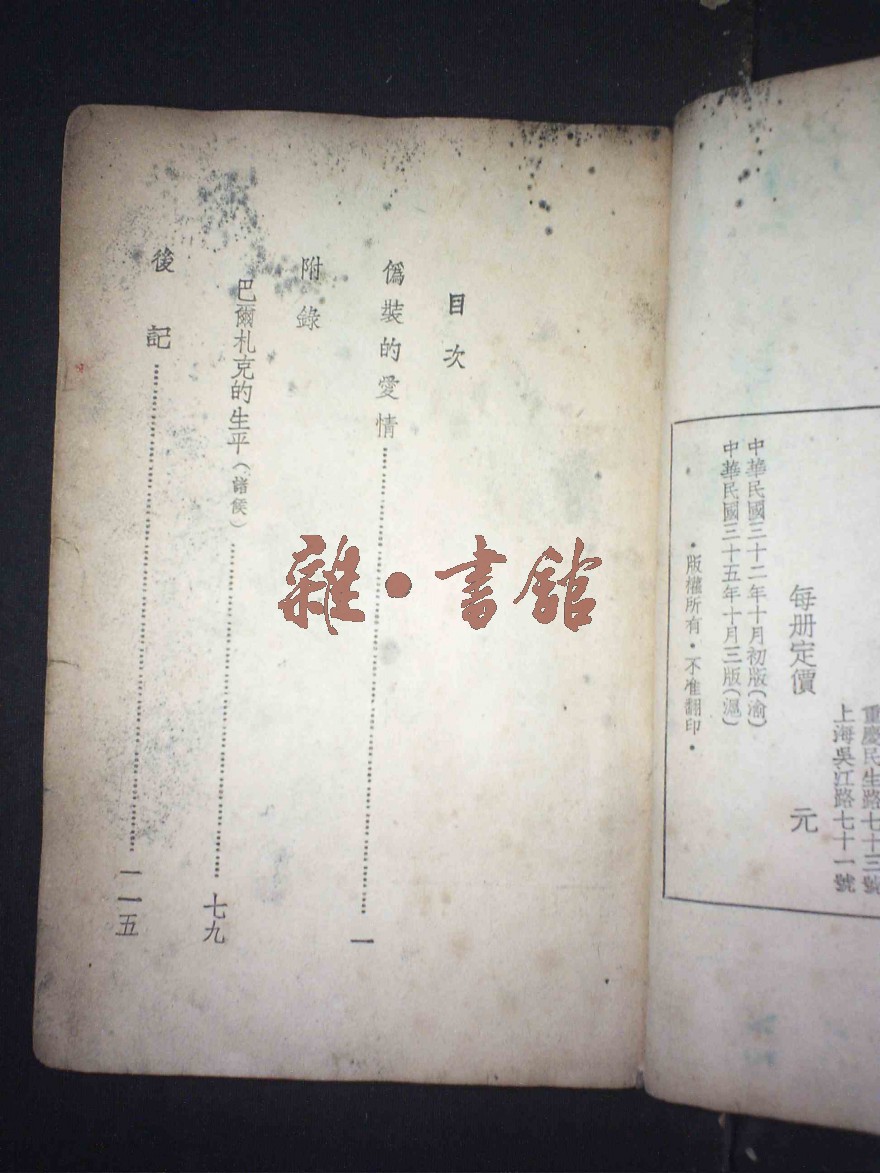 重慶民生路七十三號
上海吳江路七十一號
每册定價 元
中華民國三十二年十月初版(渝)
中華民國三十五年十月三版(滬)
·版權所有·不准翻印·
目次
僞裝的愛情 一
附錄
巴爾札克的生平(諸侯) 七九
後記 一一五
雜·書館